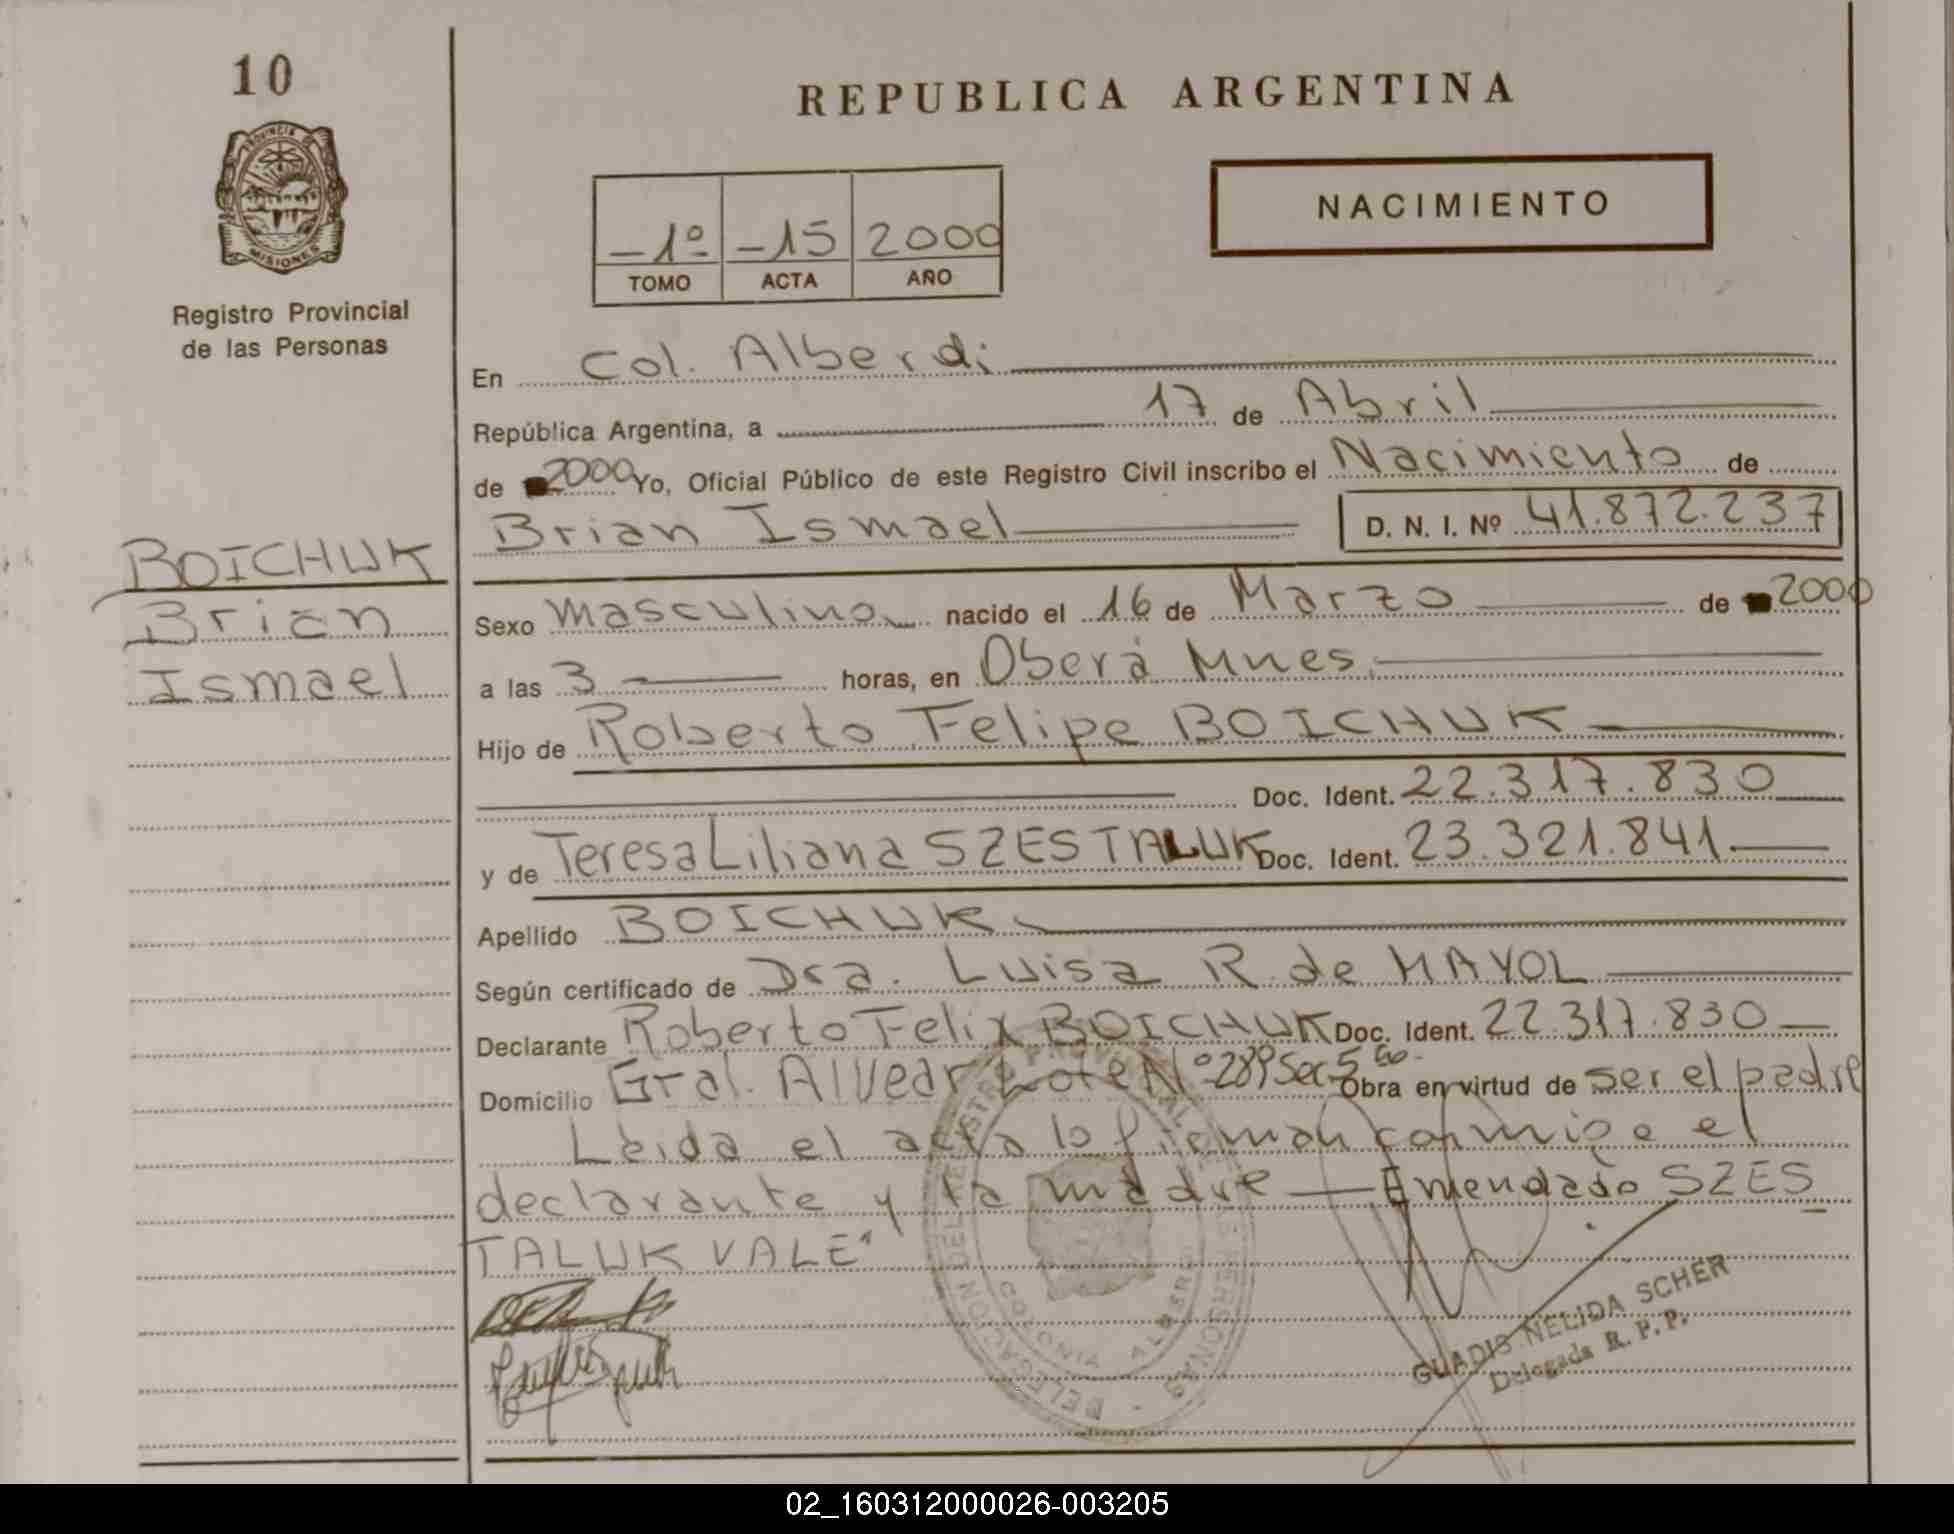 10
PROVINCIA DE
MISIONES
Registro Provincial
de las Personas
BOICHUK
Brian
Ismael
REPUBLICA ARGENTINA
-1º -15 2000
TOMO ACTA AÑO
NACIMIENTO
En Col. Alberdi
República Argentina, a 17 de Abril
de 2000 Yo, Oficial Público de este Registro Civil inscribo el Nacimiento de
Brian Ismael D. N. I. Nº 41.872.237
Sexo Masculino nacido el 16 de Marzo de 2000
a las 3 horas, en Oberá Mnes.
Hijo de Roberto Felipe BOICHUK
Doc. Ident. 22.317.830
y de Teresa Liliana SZESTALUK Doc. Ident. 23.321.841
Apellido BOICHUK
Según certificado de Dra. Luisa R. de MAYOL
Declarante Roberto Felix BOICHUK Doc. Ident. 22.317.830
Domicilio Gral. Alvear Lote Nº 289 Sec 5 Obra en virtud de ser el padre
Leida el acta lo firman conmigo el
declarante y la madre — Enmendado SZES
TALUK VALE"
DELEGACION DEL REGISTRO PROVINCIAL DE LAS PERSONAS
COLONIA ALBERDI
GLADIS NELIDA SCHER
Delegada R. P. P.
02_160312000026-003205